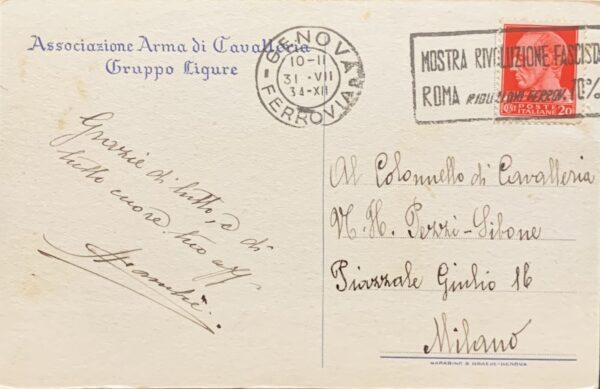 Associazione Arma di Cavalleria
Gruppo Ligure
GENOVA
10-11
31 VII
34-XII
FERROVIA
MOSTRA RIVOLUZIONE FASCISTA
ROMA RIDUZIONI FERROV. 70%
POSTE
ITALIANE
20
Grazie di tutto, e di
tutto cuore. tuo aff
Al Colonnello di Cavalleria
N. H. Pezzi-Sibone
Piazzale Giulio 16
Milano